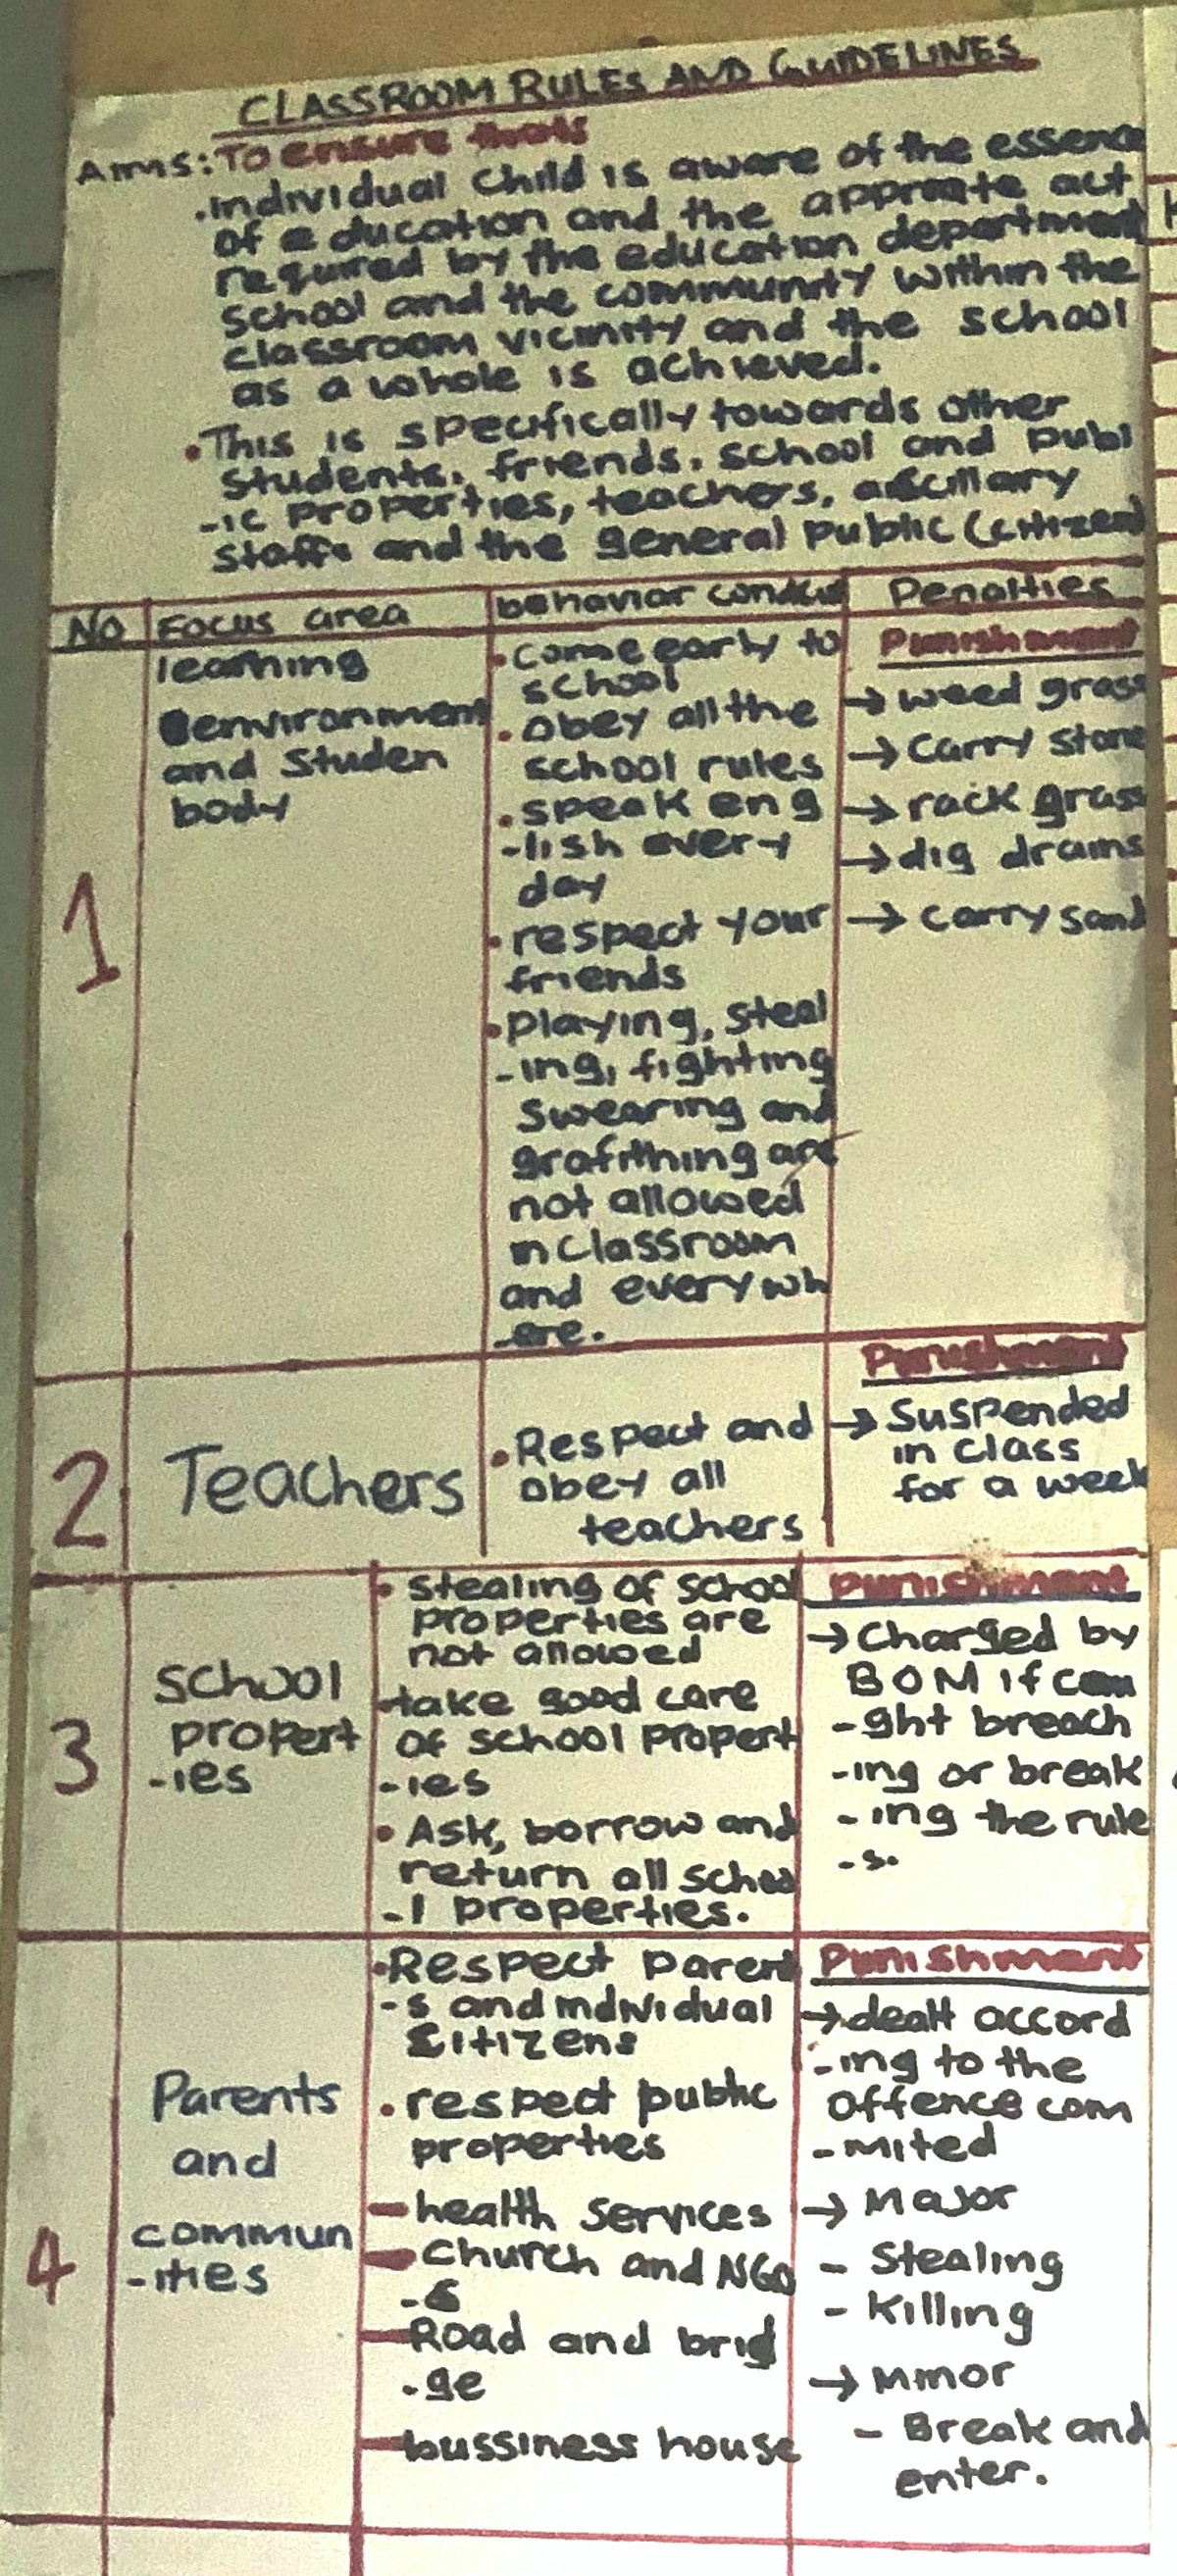 CLASSROOM RULES AND GUIDELINES
Aims: To ensure thats
. Individual Child is aware of the essence
of education and the approate act
required by the education department
School and the community within the
classroom vicinity and the school
as a whole is achieved.
. This is specifically towards other
students, friends, school and publ
-ic properties, teachers, ascillary
staffs and the general public (citizen)
No Focus area behavior conduct Penalties
learning
environment
and Studen
body
1
. come early to
school
. obey all the
school rules
. speak eng
-lish every
day
. respect your
friends
. playing, steal
-ing, fighting
swearing and
grafithing are
not allowed
in classroom
and everywh
-ere.
Punishment
→ weed grass
→ Carry stone
→ rack grass
→ dig drains
→ carry sand
2
Teachers
. Respect and
obey all
teachers
Punishment
→ Suspended
in class
for a week
3
school
propert
-ies
. stealing of school
properties are
not allowed
take good care
of school propert
-ies
. Ask, borrow and
return all schoo
-l properties.
Punishment
→ Charged by
BOM if cau
-ght breach
-ing or break
-ing the rule
-s.
4
Parents
and
commun
-ities
. Respect Parent
-s and individual
citizens
. respect public
properties
- health services
- Church and NGO
-s
- Road and brid
-ge
- bussiness house
Punishment
→ dealt accord
-ing to the
offence com
-mited
→ Major
- Stealing
- Killing
→ Minor
- Break and
enter.